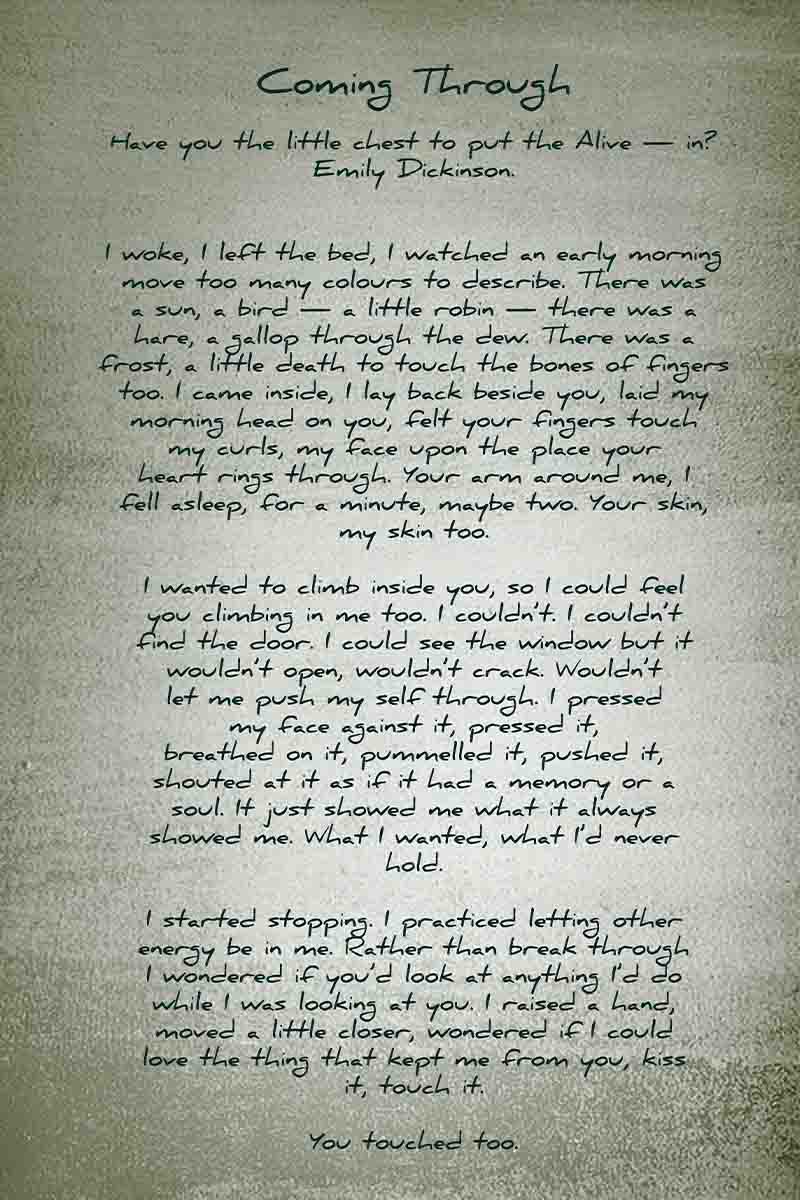 Coming Through
Have you the little chest to put the Alive — in?
Emily Dickinson.
I woke, I left the bed, I watched an early morning
move too many colours to describe. There was
a sun, a bird — a little robin — there was a
hare, a gallop through the dew. There was a
frost, a little death to touch the bones of fingers
too. I came inside, I lay back beside you, laid my
morning head on you, felt your fingers touch
my curls, my face upon the place your
heart rings through. Your arm around me, I
fell asleep, for a minute, maybe two. Your skin,
my skin too.
I wanted to climb inside you, so I could feel
you climbing in me too. I couldn't. I couldn't
find the door. I could see the window but it
wouldn't open, wouldn't crack. Wouldn't
let me push my self through. I pressed
my face against it, pressed it,
breathed on it, pummelled it, pushed it,
shouted at it as if it had a memory or a
soul. It just showed me what it always
showed me. What I wanted, what I'd never
hold.
I started stopping. I practiced letting other
energy be in me. Rather than break through
I wondered if you'd look at anything I'd do
while I was looking at you. I raised a hand,
moved a little closer, wondered if I could
love the thing that kept me from you, kiss
it, touch it.
You touched too.